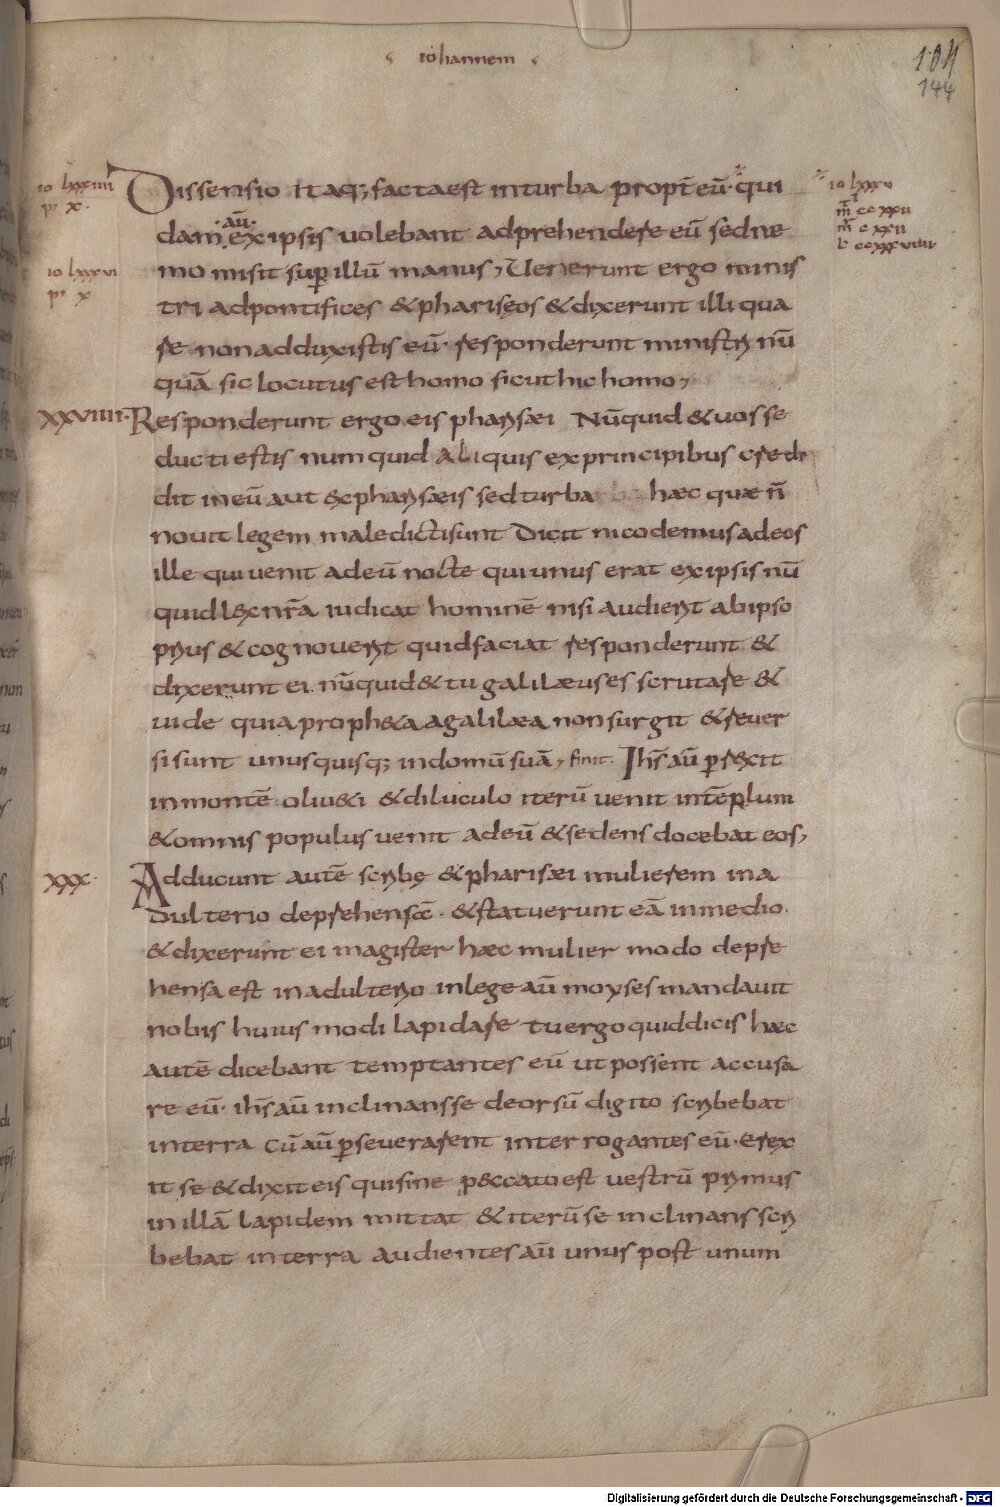 iohannem
104
144
io lxxxiiii
p x
Dissensio itaq; facta est in turba propt̄ eū qui
dam ·aū· ex ipsis volebant adprehendere eū sed ne
mo misit sup̱ illū manus, Venerunt ergo minis
tri ad pontifices & phariseos & dixerunt illi qua
re non adduxistis eū· responderunt ministri nū
quā sic locutus est homo sicut hic homo,
io lxxxvi
p x
io lxxxv
m̄ ccxxii
m̄ cxxii
l ccxxxviiii
xxviiii· Responderunt ergo eis pharisæi Nūquid & vos se
ducti estis numquid aliquis ex principibus credi
dit in eū aut ex pharisæis sed turba hæc quæ n̄
novit legem maledicti sunt Dicit nicodemus ad eos
ille qui venit ad eū nocte qui unus erat ex ipsis nū
quid lex nr̄a iudicat hominē nisi audierit ab ipso
prius & cognoverit quid faciat responderunt &
dixerunt ei nūquid & tu galilæus es scrutare &
vide quia proph&a a galilæa non surgit & rever
si sunt unusquisq; in domū suā, finit. Ih̄s aū p̱rexit
in montē oliu&i & diluculo iterū venit in tēplum
& omnis populus venit ad eū & sedens docebat eos,
xxx· Adducunt autē scribę & pharisæi mulierem in a
dulterio deprehensā· & statuerunt eā in medio·
& dixerunt ei magister hæc mulier modo depre
hensa est in adulterio in lege aū moyses mandavit
nobis huius modi lapidare tu ergo quid dicis hæc
autē dicebant temptantes eū ut possent accusa
re eū· ih̄s aū inclinans se deorsū digito scribebat
in terra cū aū p̱severarent interrogantes eū· erex
it se & dixit eis qui sine peccato est vestrū primus
in illā lapidem mittat & iterū se inclinans scri
bebat in terra audientes aū unus post unum
Digitalisierung gefördert durch die Deutsche Forschungsgemeinschaft - DFG